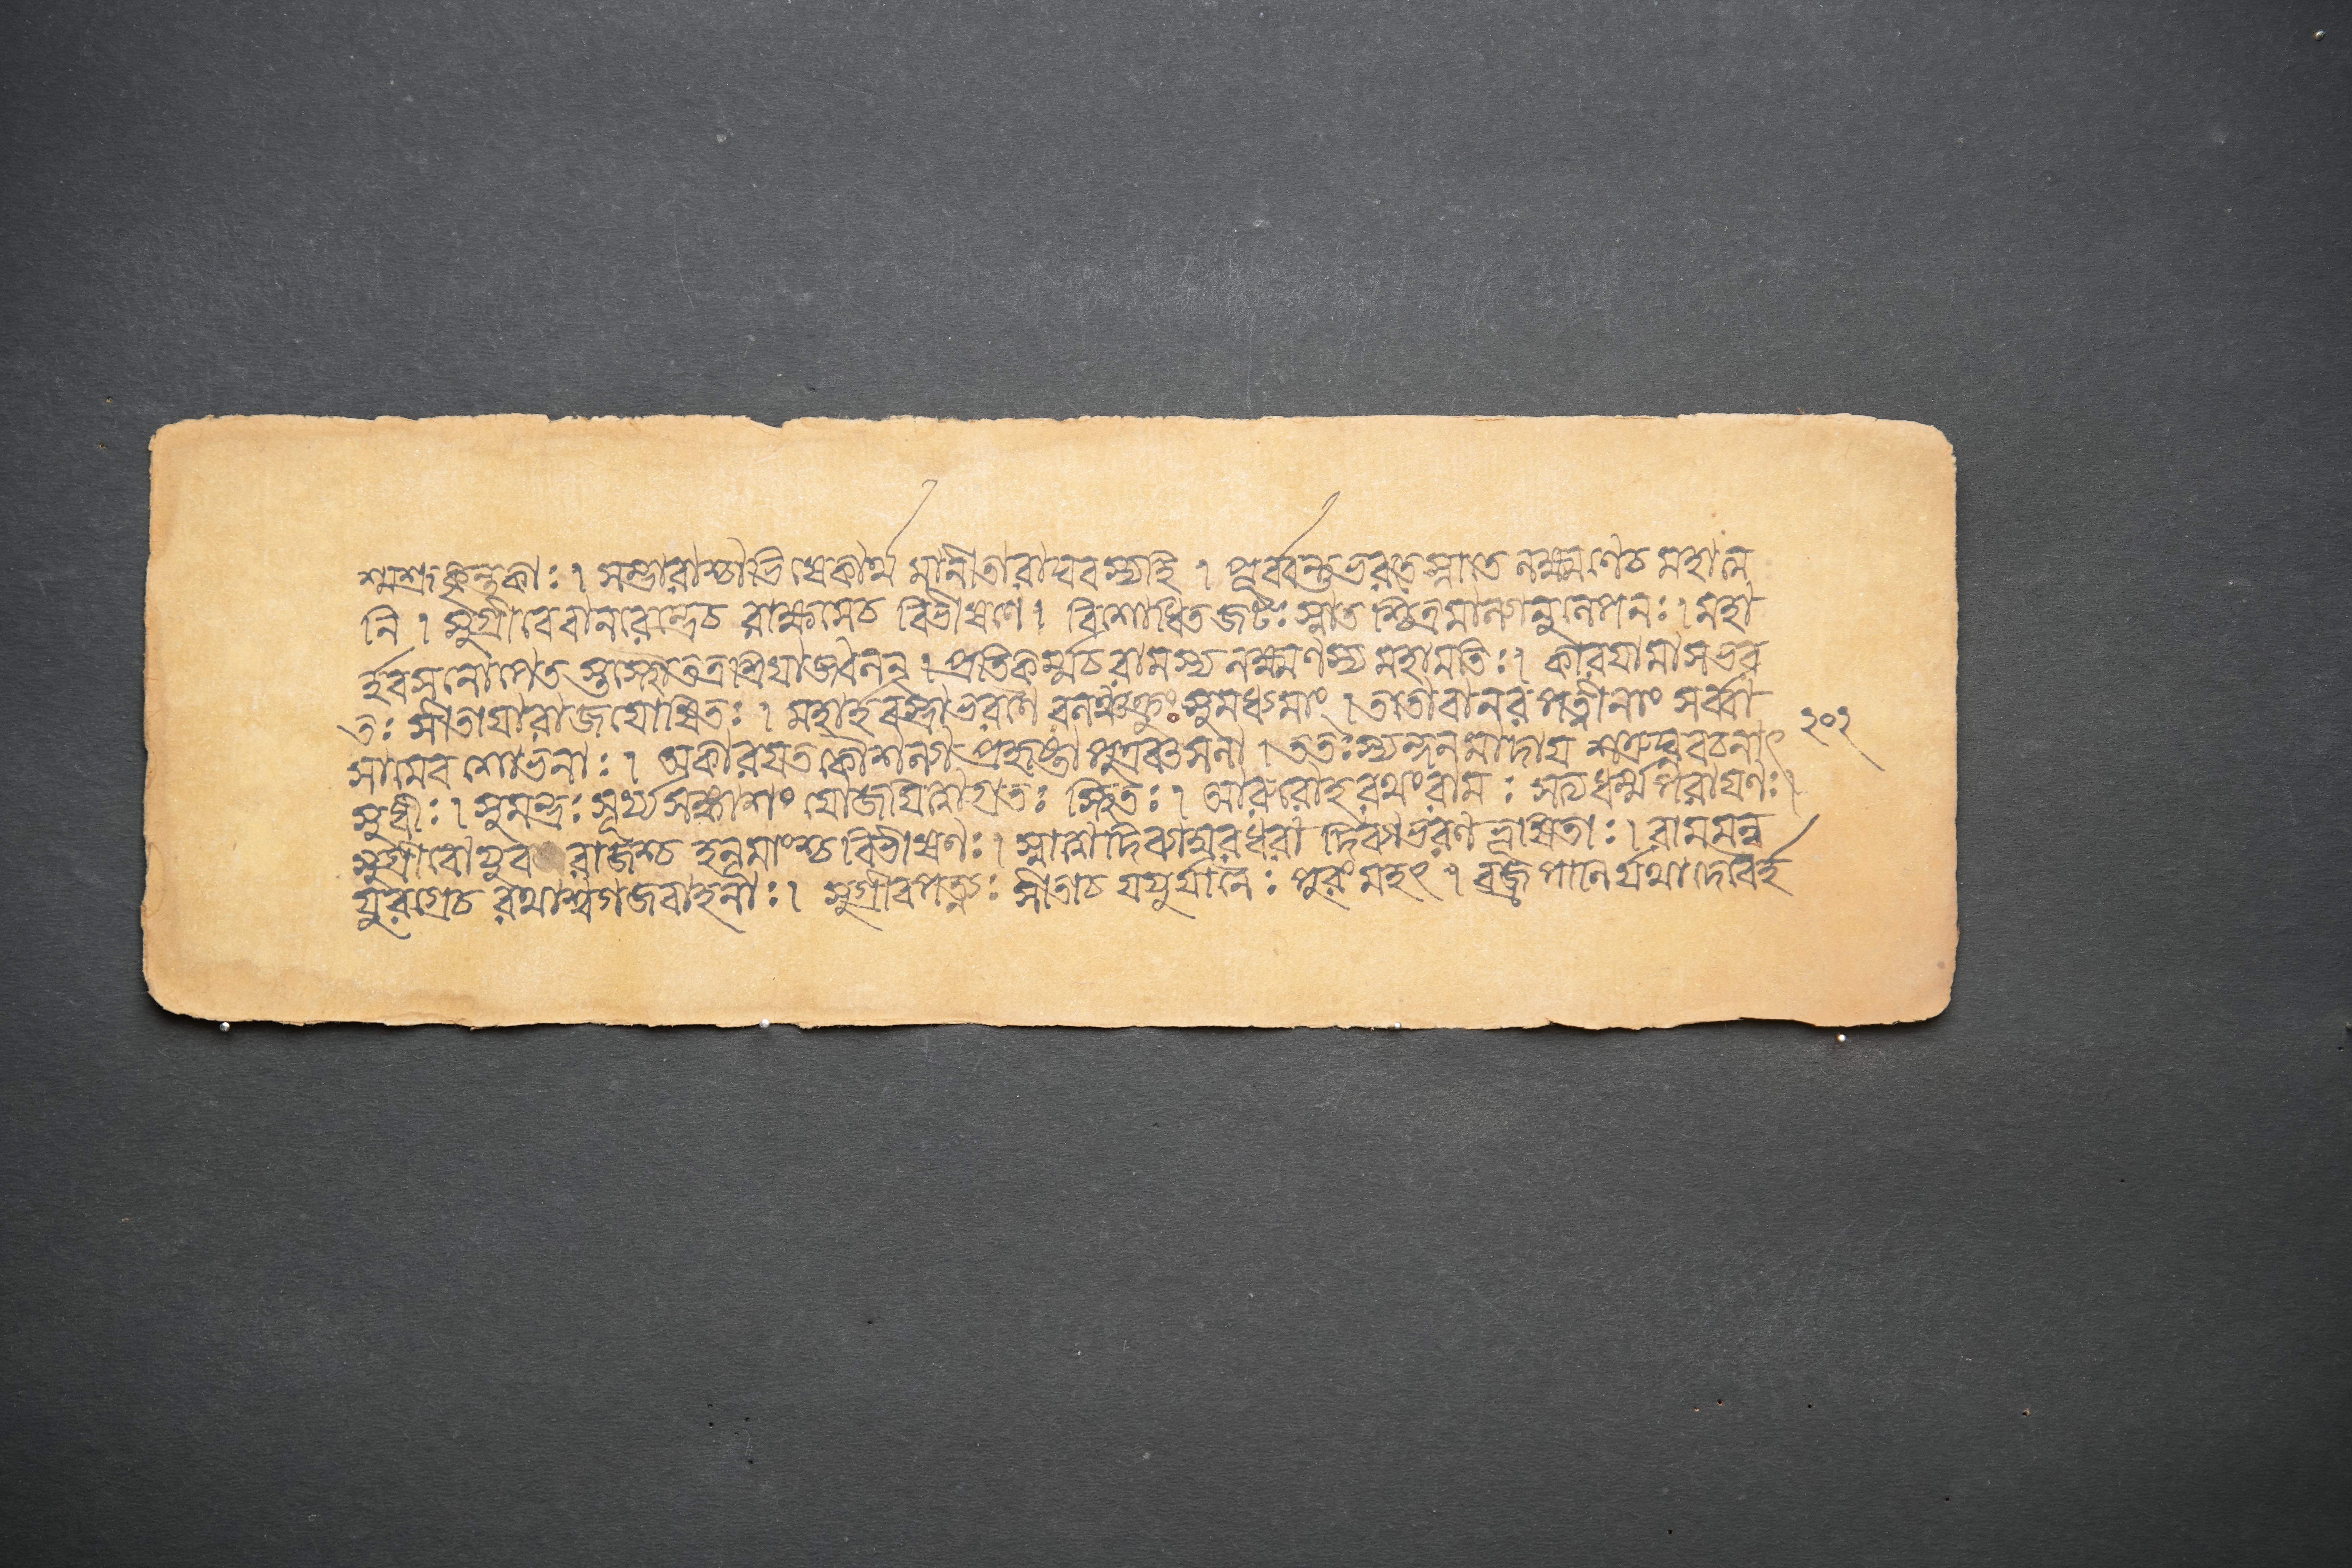 শ্মশ্রুকৃন্তকাঃ । সম্ভারাশ্চাভিষেকার্থমানীতা রাঘবস্য হি । পূর্ব্বন্তু ভরতে স্নাতে লক্ষ্মণে চ মহাত্ম
নি । সুগ্রীবে বানরেন্দ্রে চ রাক্ষসে চ বিভীষণে । বিশোধিতজটঃ স্নাতশ্চিত্রমাল্যানুলেপনঃ । মহা
র্হবসনোপেতস্তস্থৌ তত্র শ্রিয়া জ্বলন্ । প্রতিকর্ম্ম চ রামস্য লক্ষ্মণস্য মহামতিঃ । কারয়ামাস ভর
তঃ সীতায়া রাজযোষিতঃ । মহার্হবস্ত্রাভরণৈরলঞ্চক্রুঃ সুমধ্যমাং । ততো বানরপত্নীনাং সর্ব্বা
সামেব শোভনাঃ । অকারয়ত কৌশল্যা প্রহৃষ্টা পুত্রবৎসলা । ততঃ স্যন্দনমাদায় শত্রুঘ্নবচনাৎ ২০২
সুধীঃ । সুমন্ত্রঃ সূর্য্যসঙ্কাশং যোজয়িত্বাগ্রতঃ স্থিতঃ । আরুরোহ রথং রামঃ সত্যধর্ম্মপরায়ণঃ ।
সুগ্রীবো যুবরাজশ্চ হনুমাংশ্চ বিভীষণঃ । স্নাত্বা দিব্যাম্বরধরা দিব্যাভরণভূষিতাঃ । রামমন্বী
যুরগ্রে চ রথাশ্বগজবাহনাঃ । সুগ্রীবপত্ন্যঃ সীতা চ যযুর্যানৈঃ পুরং মহৎ । বজ্রপাণির্যথা দেবৈর্হ